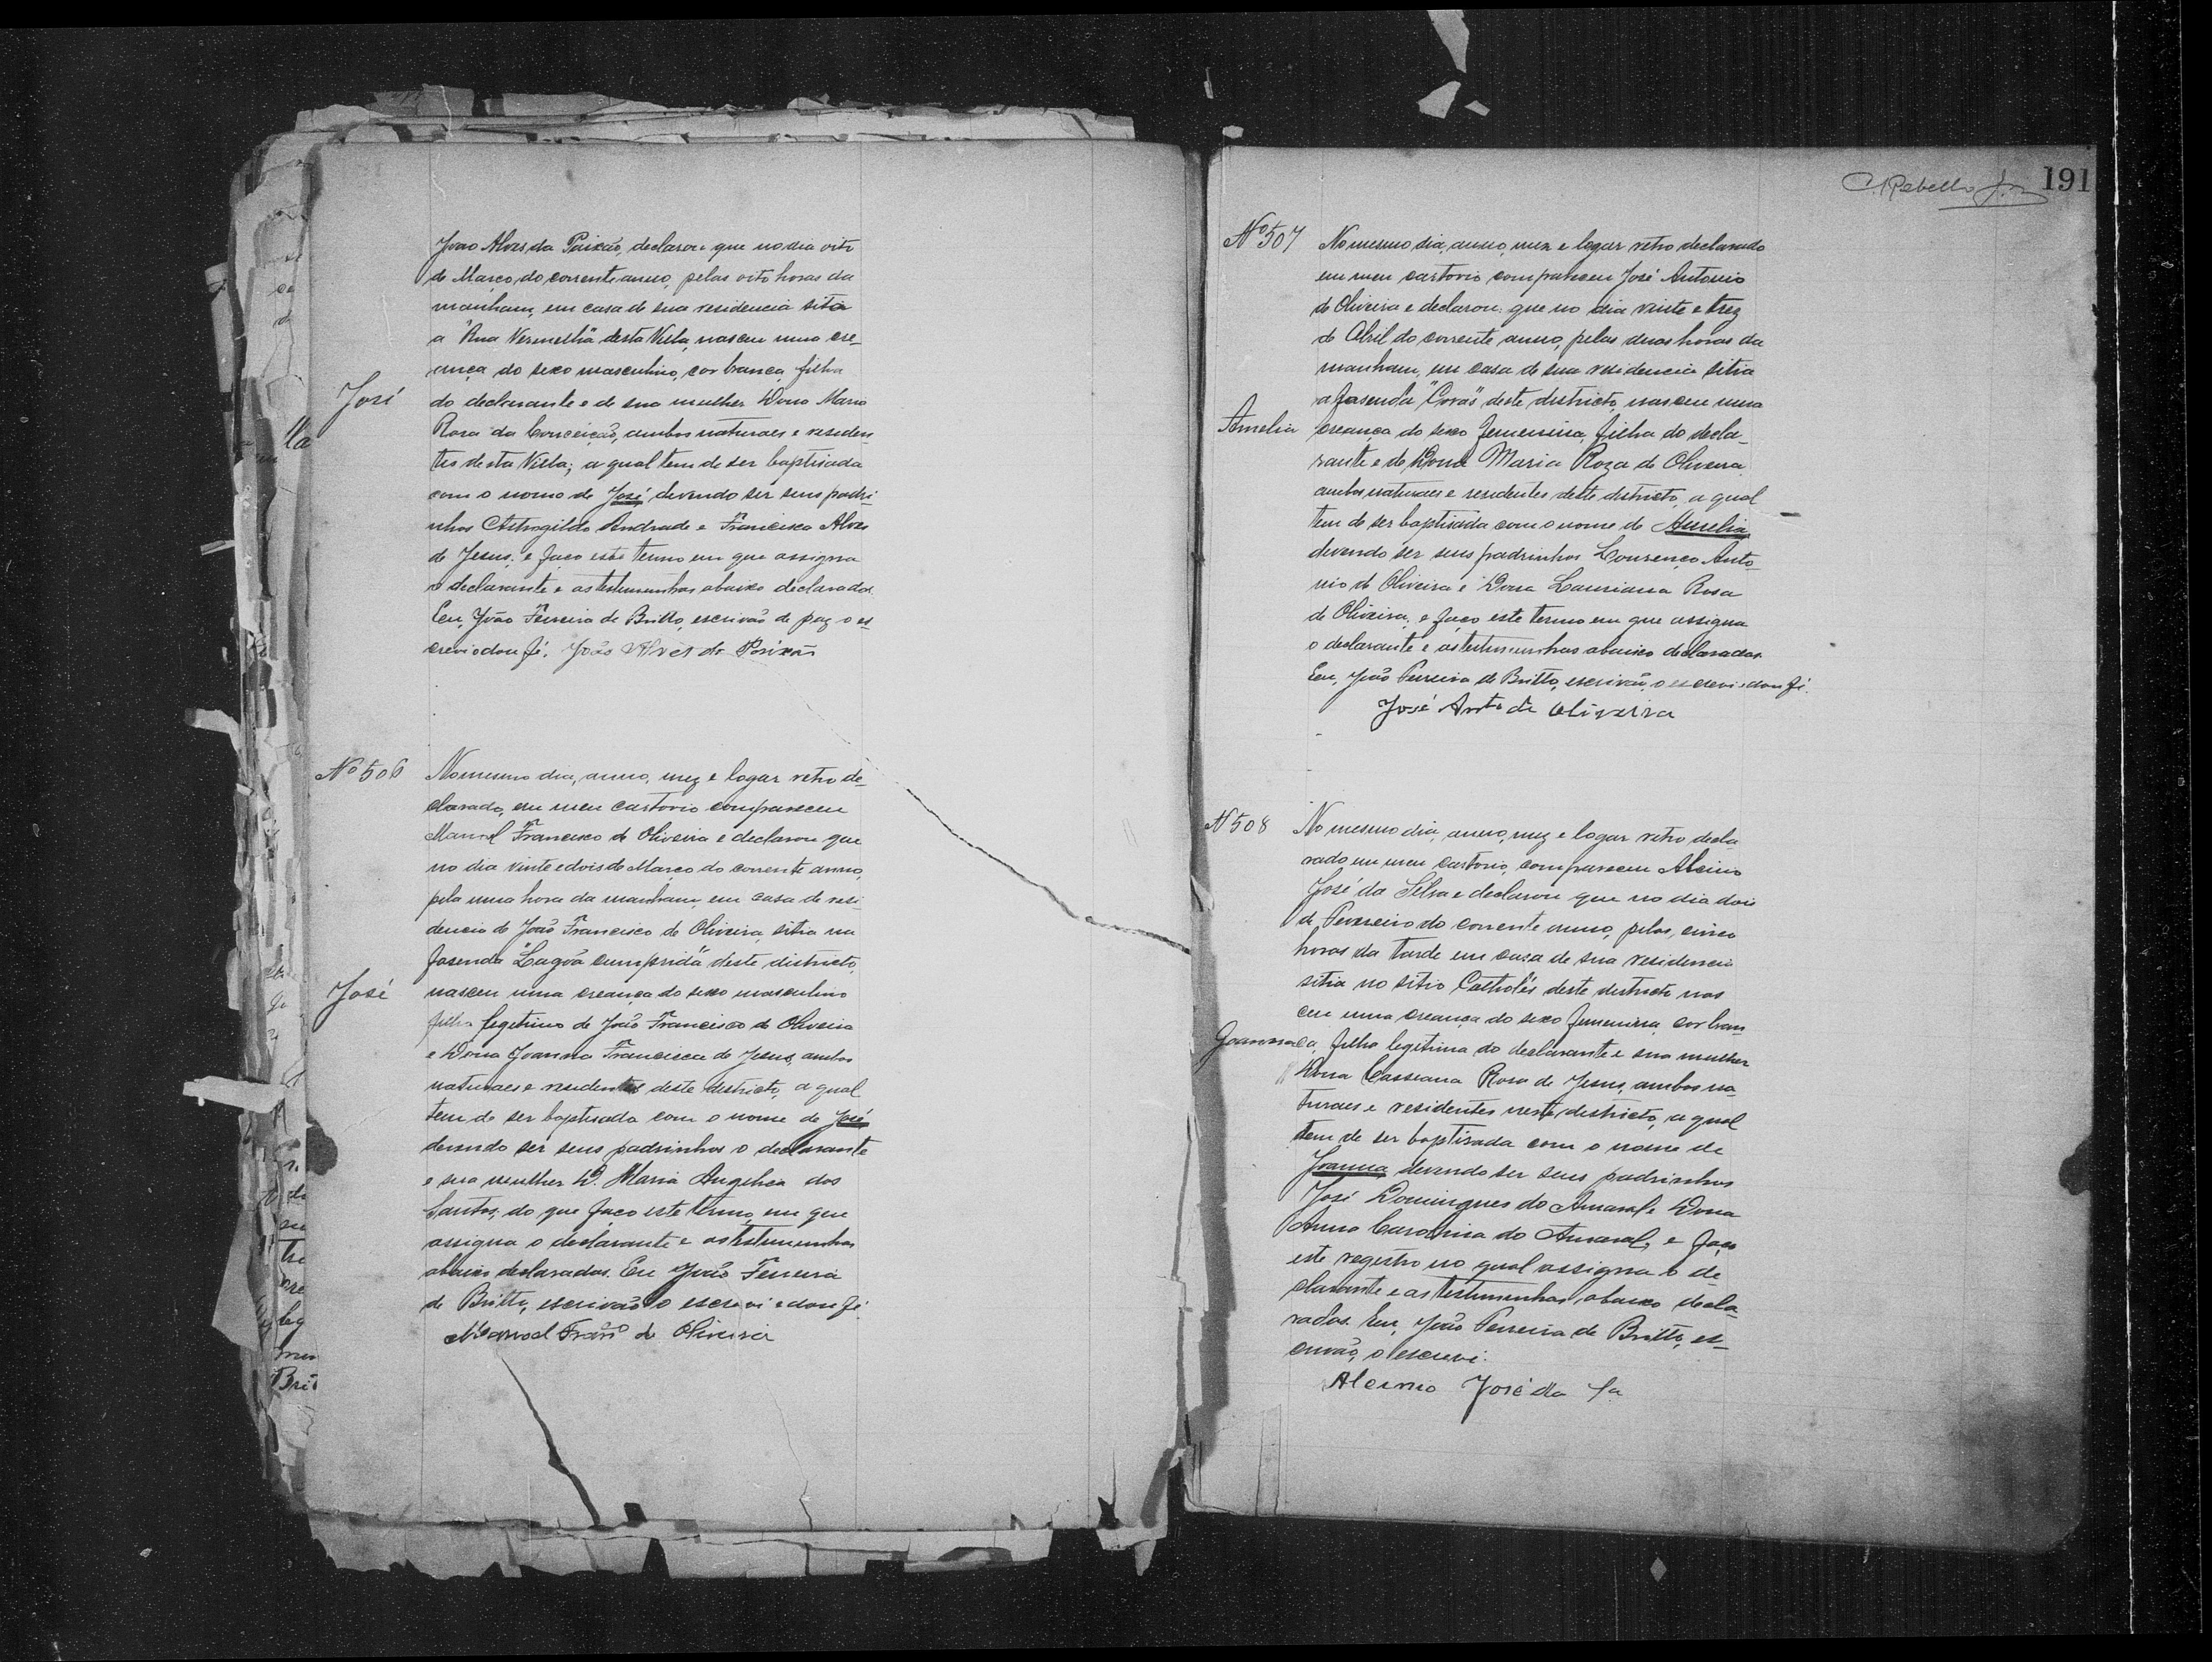 João Alves da Paixão, declarou que no dia oito
de Março do corrente anno, pelas oito horas da
manham, em casa de sua residencia sitia
a "Rua Vermelha" desta Villa, nasceu uma cre-
ança do sexo masculino, cor branca, filha
José
do declarante e de sua mulher Dona Maria
Rosa da Conceição, ambos naturaes e residen
tes desta Villa; a qual tem de ser baptisada
com o nome de José, devendo ser seus padri
nhos Astrogildo Andrade e Francisca Alves
de Jesus; e faço este termo em que assigna
o declarante e as testemunhas abaixo declaradas.
Eu, João Ferreira de Britto, escrivão de paz o es-
crevi e dou fé. João Alves da Paixão
Nº 506
No mesmo dia, anno, mez e logar retro de-
clarado, em meu cartorio compareceu
Manoel Francisco de Oliveira e declarou que
no dia vinte e dois de Março do corrente anno,
pela uma hora da manham, em casa de resi-
dencia de João Francisco de Oliveira, sitia na
fasenda "Lagôa cumprida" deste districto,
José
nasceu uma creança do sexo masculino
filha legitimo de João Francisco de Oliveira
e Dona Joanna Francisca de Jesus, ambos
naturaes e residentes deste districto, a qual
tem de ser baptisada com o nome de José
devendo ser seus padrinhos o declarante
e sua mulher D. Maria Angelica dos
Santos, do que faço este termo em que
assigna o declarante e as testemunhas
abaixo declaradas. Eu João Ferreira
de Britto, escrivão o escrevi e dou fé.
Manoel Franco de Oliveira
C. Rebello Jr. 191
Nº 507
No mesmo dia, anno, mez e logar retro declarado
em meu cartorio compareceu José Antonio
de Oliveira e declarou: que no dia vinte e trez
de Abril do corrente anno, pelas duas horas da
manham, em casa de sua residencia sitia
a fasenda deste districto, nasceu uma
Amelia
creança do sexo femenina, filha do decla-
rante e de Dona Maria Roza de Oliveira
ambos naturaes e residentes deste districto, a qual
tem de ser baptisada com o nome de
devendo ser seus padrinhos Lourenço Anto-
nio de Oliveira e Dona Lauriana Rosa
de Oliveira, e faço este termo em que assigna
o declarante e as testemunhas abaixo declaradas.
Eu, João Ferreira de Britto, escrivão, o escrevi e dou fé.
José Anto de Oliveira
N 508
No mesmo dia, anno, mez e logar retro decla-
rado em meu cartorio, compareceu Alcino
José da Silva e declarou que no dia dois
de Fevereiro do corrente anno, pelas cinco
horas da tarde em casa de sua residencia
sitia no sitio Catholés deste districto nas
ceu uma creança do sexo femenina, cor bran
Joanna
ca, filha legitima do declarante e sua mulher
Dona Cassiana Rosa de Jesus, ambos na-
turaes e residentes neste districto, a qual
tem de ser baptisada com o nome de
Joanna devendo ser seus padrinhos
José Domingues do Amaral e Dona
Anna Carolina do Amaral, e faço
este registro no qual assigna o de-
clarante e as testemunhas abaixo decla-
radas. Eu, João Ferreira de Britto, es-
crivão, o escrevi.
Alcino José da Sa